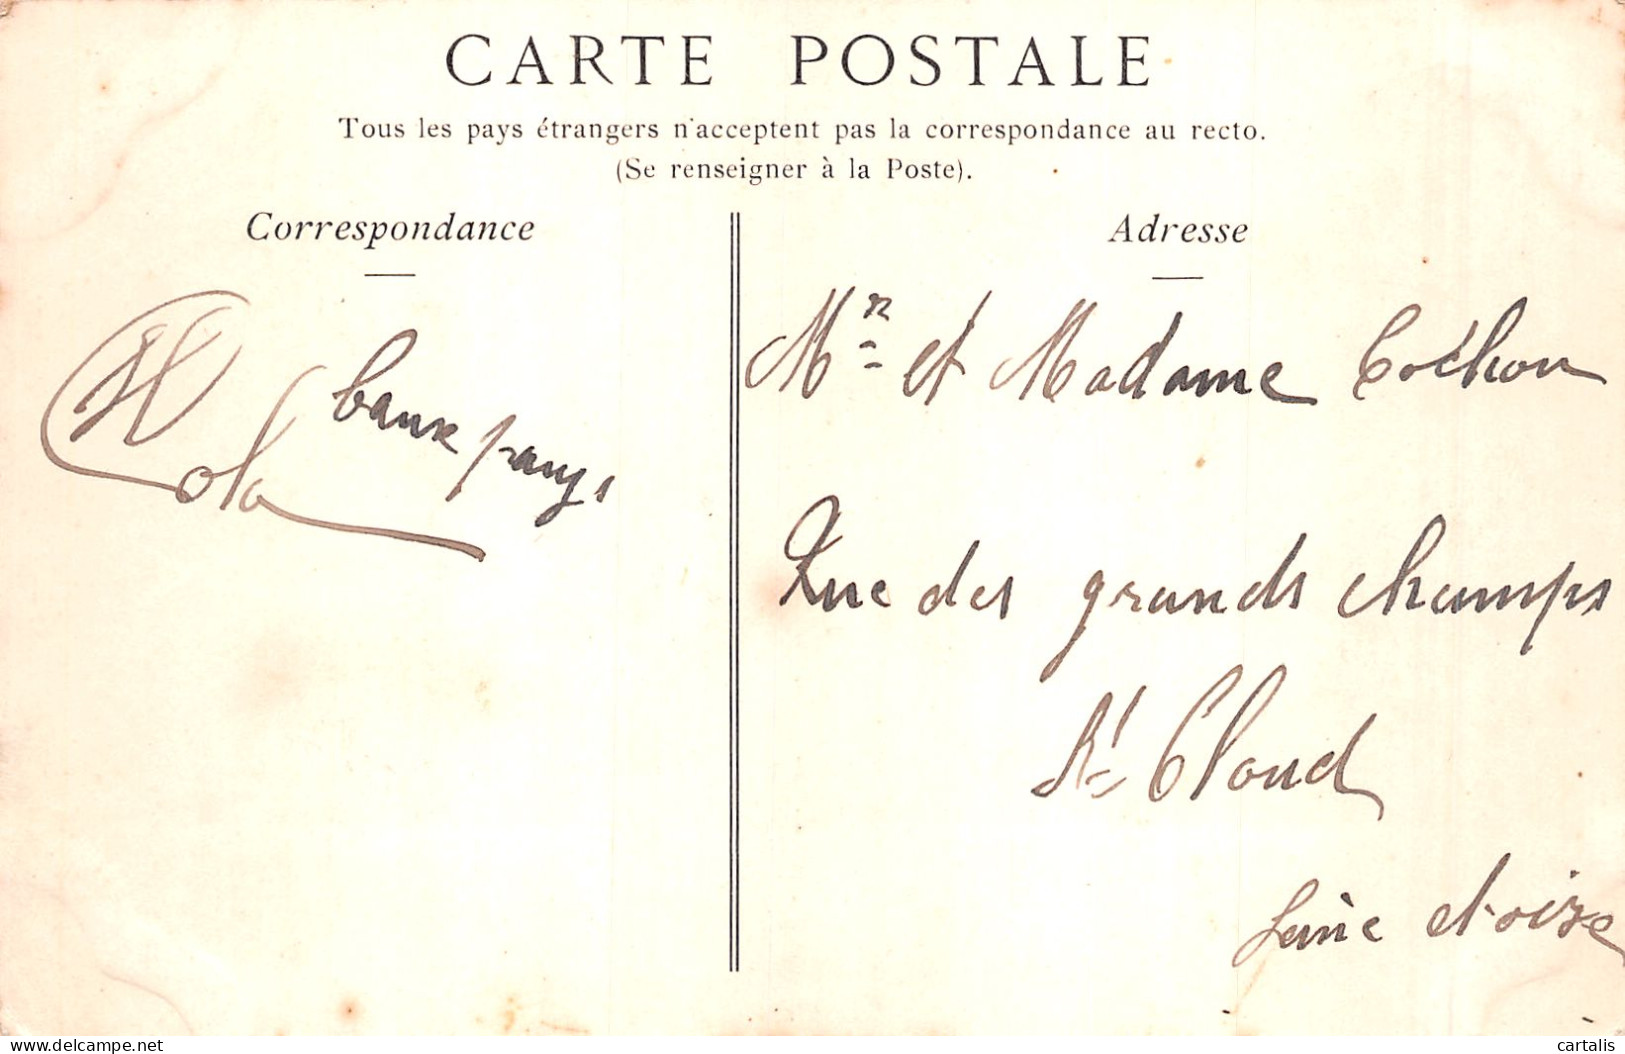 CARTE POSTALE
Tous les pays étrangers n'acceptent pas la correspondance au recto.
(Se renseigner à la Poste).
Correspondance
Adresse
Mr et Madame Cochon
Rue des grands champs
St Cloud
Seine et oise
cartalis
delcampe.net